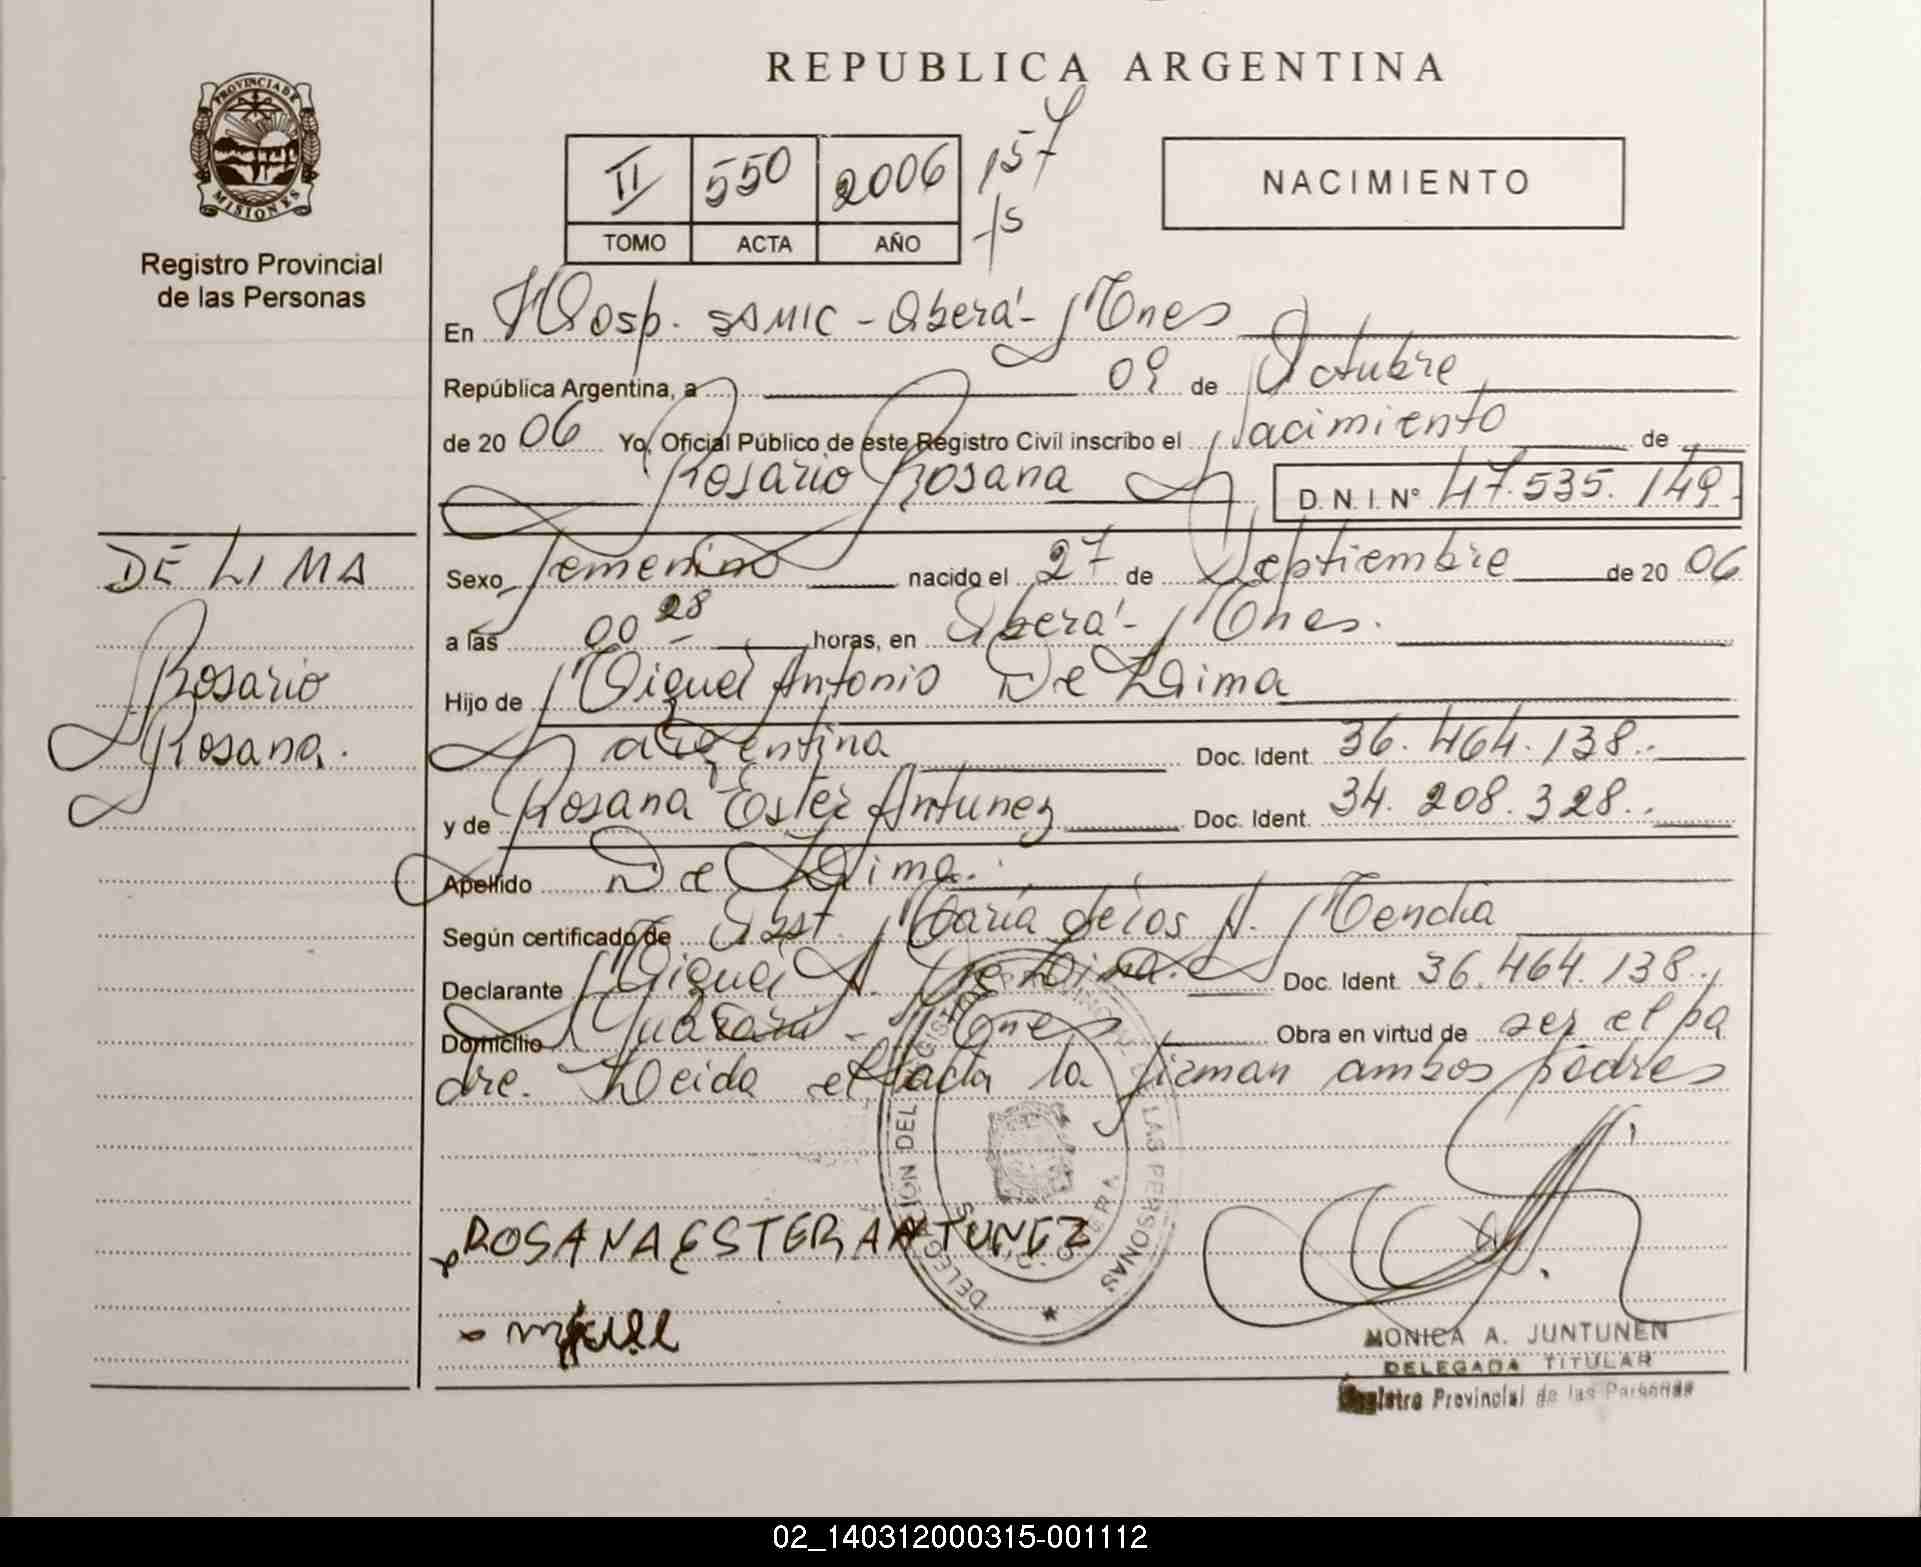 REPUBLICA ARGENTINA
PROVINCIA DE MISIONES
Registro Provincial
de las Personas
II 550 2006 157
TOMO ACTA AÑO
NACIMIENTO
En Hosp. SAMIC - Oberá - Mnes
República Argentina, a 09 de Octubre
de 20 06 Yo, Oficial Público de este Registro Civil inscribo el Nacimiento de
Rosario Rosana D. N. I. Nº 47.535.149
DE LIMA
Rosario
Rosana.
Sexo femenino nacido el 27 de Septiembre de 20 06
a las 00 28 horas, en Oberá - Mnes.
Hijo de Miguel Antonio De Lima
argentina Doc. Ident. 36.464.138
y de Rosana Ester Antunez Doc. Ident. 34.208.328
Apellido De Lima.
Según certificado de Obst. María de los A. Mendia
Declarante Miguel A. De Lima. Doc. Ident. 36.464.138
Domicilio Guaraní - Mnes Obra en virtud de ser el pa
dre. Leida el acta la firman ambos padres
ROSANA ESTER ANTUNEZ
DELEGACION DEL REGISTRO PROVINCIAL DE LAS PERSONAS
MONICA A. JUNTUNEN
DELEGADA TITULAR
Registro Provincial de las Personas
02_140312000315-001112